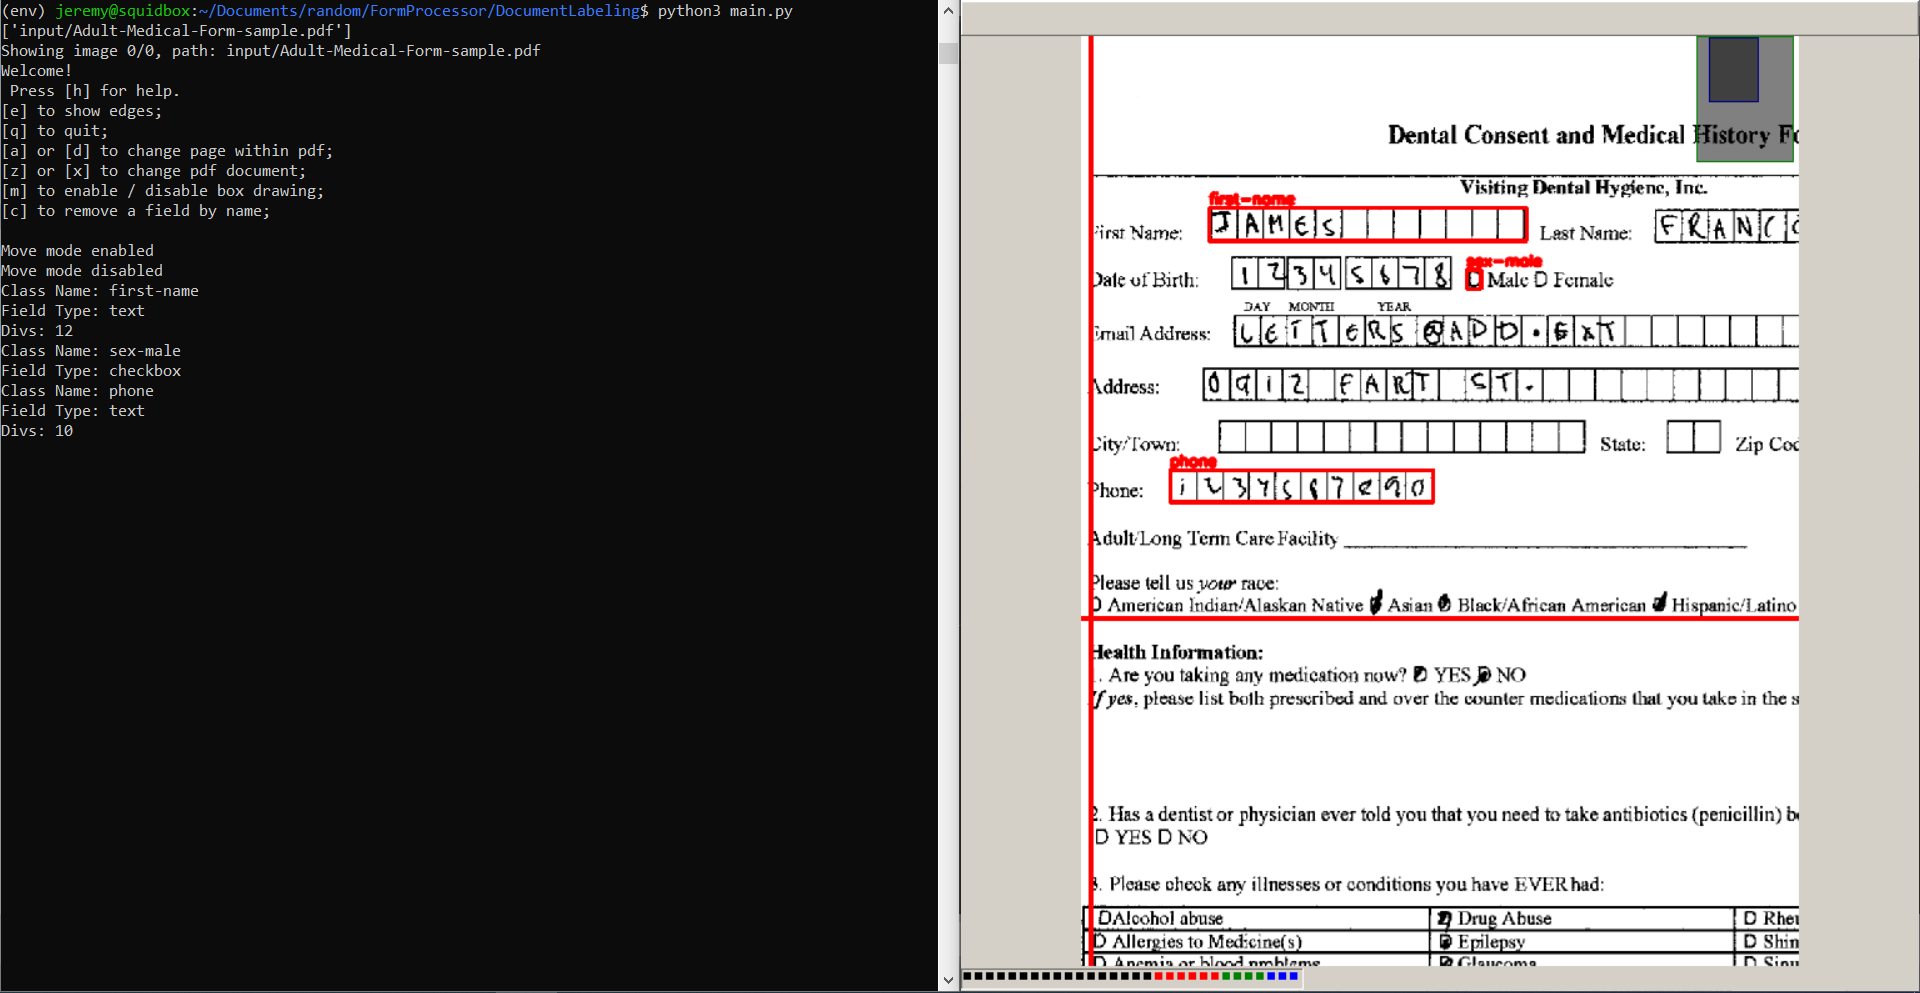 (env) jeremy@squidbox:~/Documents/random/FormProcessor/DocumentLabeling$ python3 main.py
['input/Adult-Medical-Form-sample.pdf']
Showing image 0/0, path: input/Adult-Medical-Form-sample.pdf
Welcome!
Press [h] for help.
[e] to show edges;
[q] to quit;
[a] or [d] to change page within pdf;
[z] or [x] to change pdf document;
[m] to enable / disable box drawing;
[c] to remove a field by name;
Move mode enabled
Move mode disabled
Class Name: first-name
Field Type: text
Divs: 12
Class Name: sex-male
Field Type: checkbox
Class Name: phone
Field Type: text
Divs: 10
Dental Consent and Medical History Fo
Visiting Dental Hygiene, Inc.
first-name
First Name: JAMES Last Name: FRANC
sex-male
Date of Birth: 12345678 D Male D Female
DAY MONTH YEAR
Email Address: LETTERS@ADD.EXT
Address: 0912 FART ST.
City/Town: State: Zip Cod
phone
Phone: 1234567890
Adult/Long Term Care Facility
Please tell us your race:
D American Indian/Alaskan Native Asian Black/African American Hispanic/Latino
Health Information:
. Are you taking any medication now? YES NO
If yes, please list both prescribed and over the counter medications that you take in the s
2. Has a dentist or physician ever told you that you need to take antibiotics (penicillin) be
D YES D NO
3. Please check any illnesses or conditions you have EVER had:
D Alcohol abuse Drug Abuse D Rheu
D Allergies to Medicine(s) Epilepsy D Shin
D Anemia or blood problems Glaucoma D Sinu